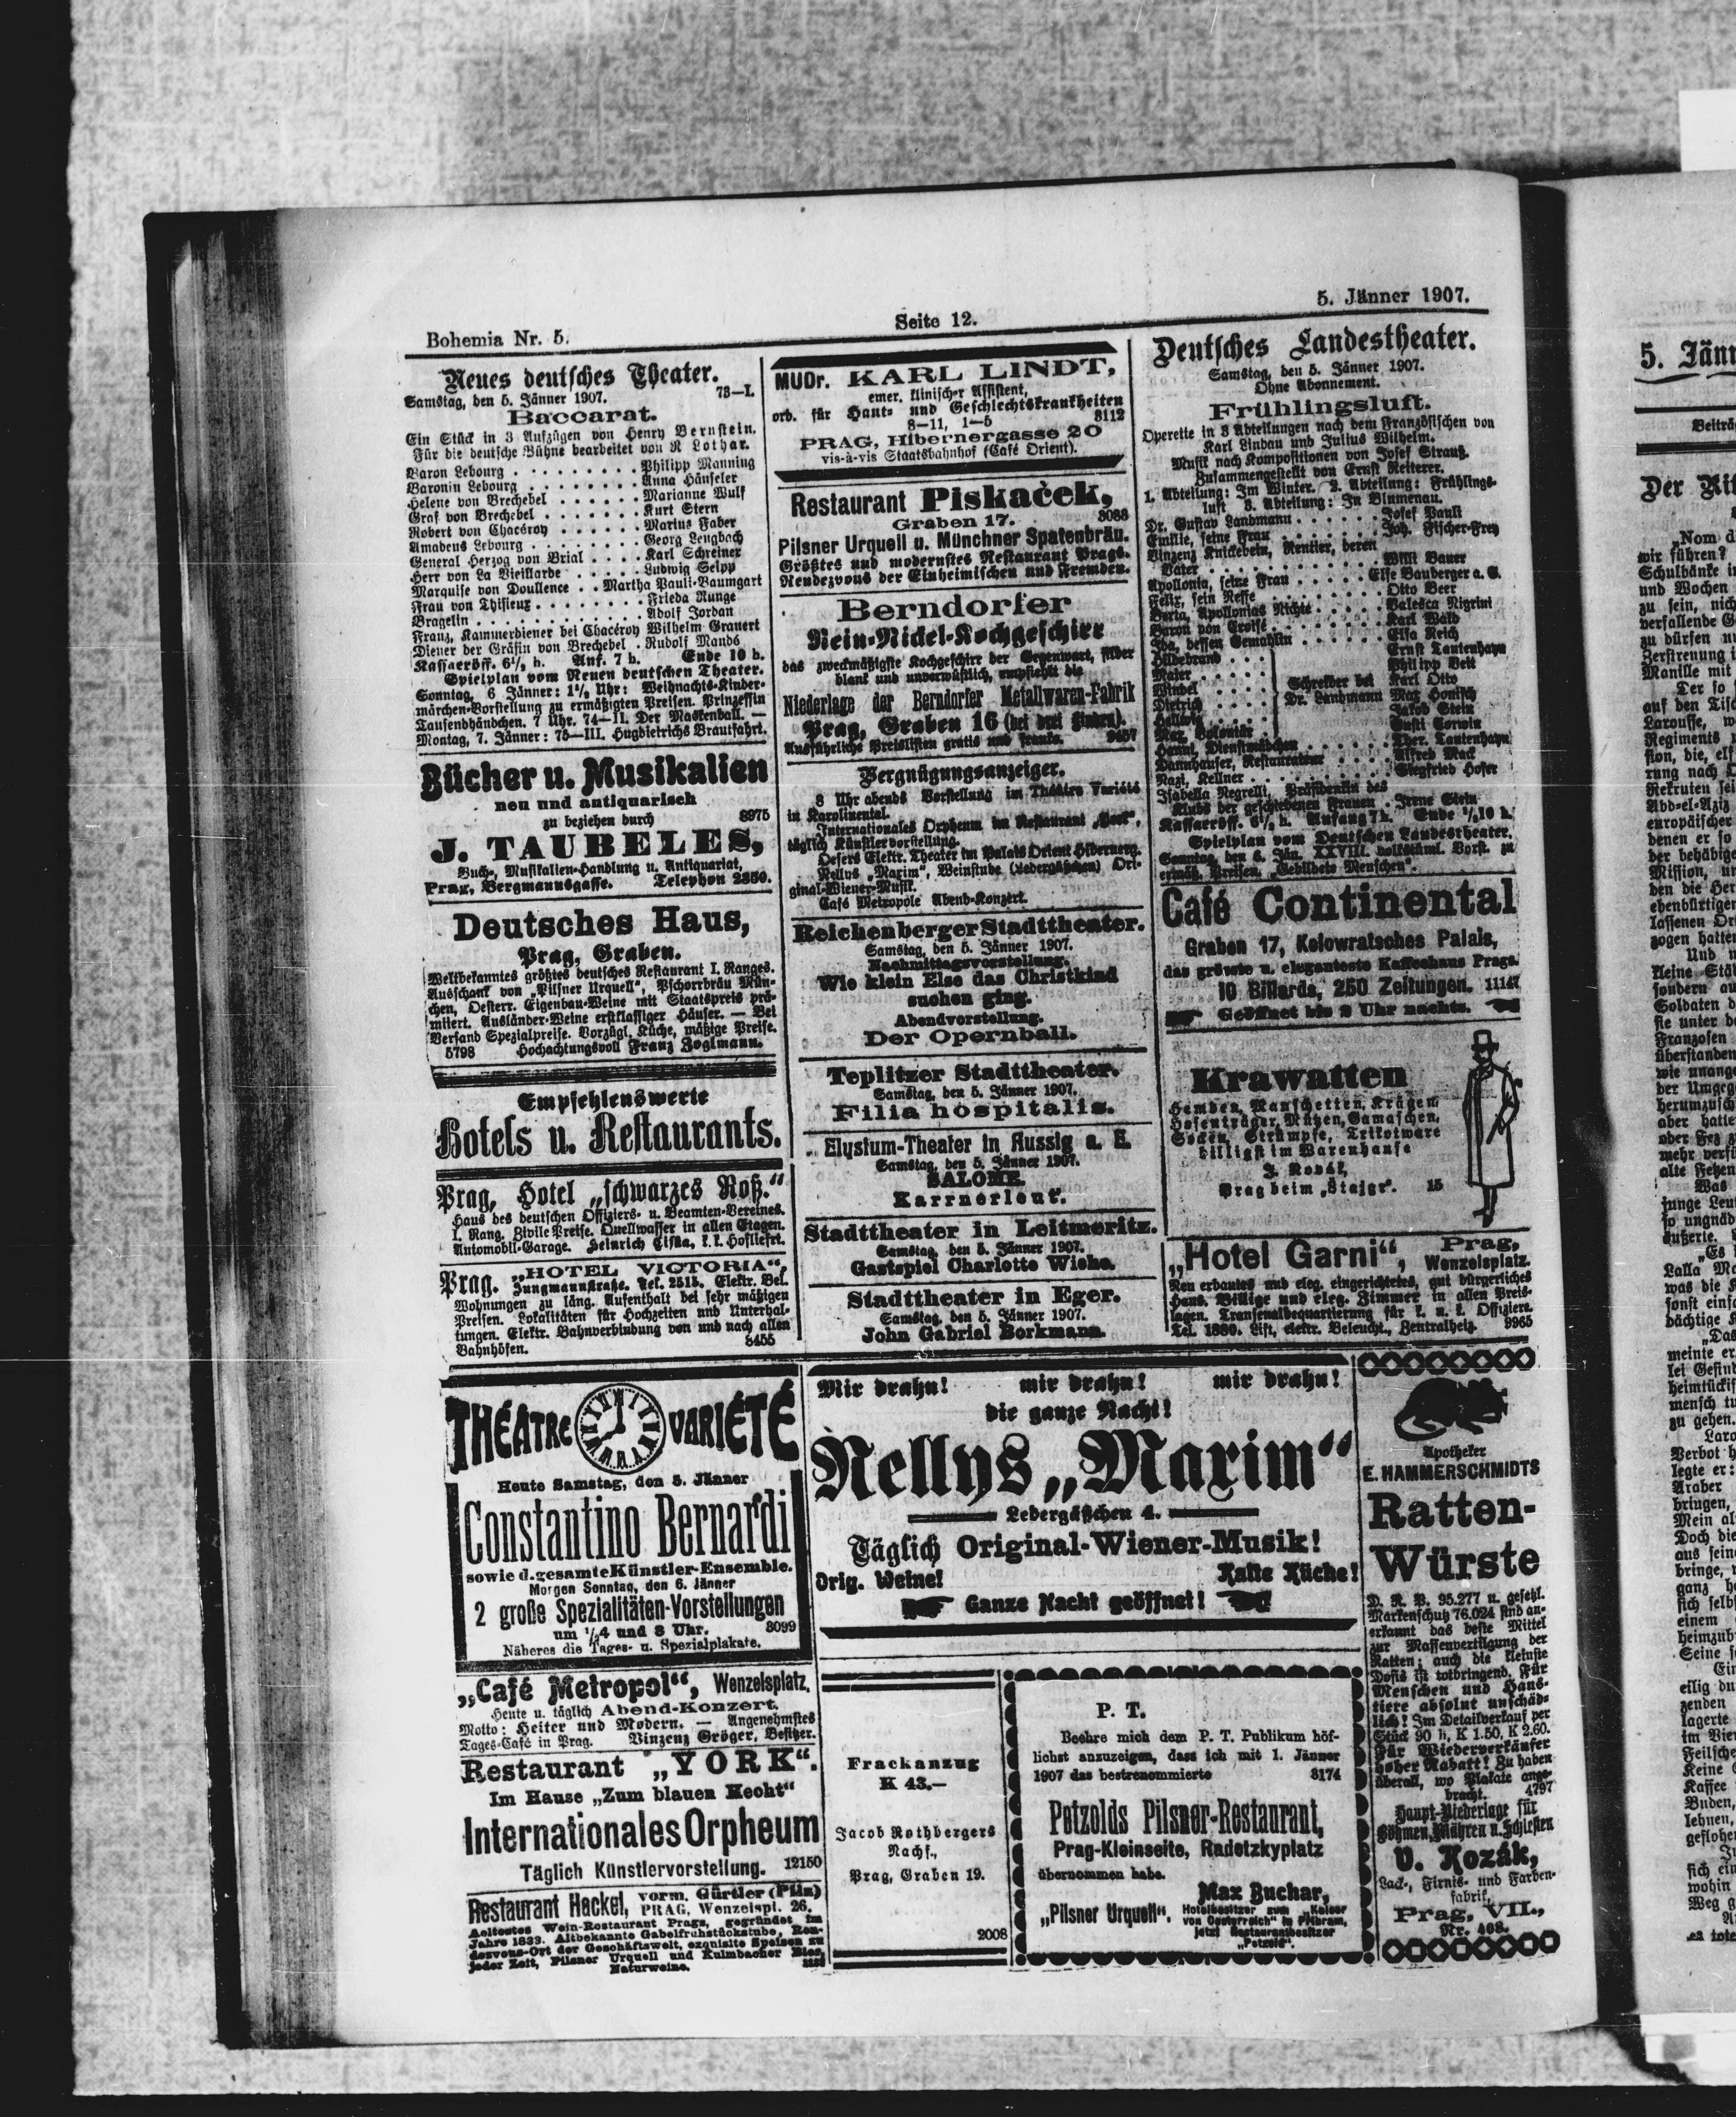 Bohemia Nr. 5.
Seite 12.
5. Jänner 1907.
Neues deutsches Theater.
Samstag, den 5. Jänner 1907. 73—I.
Baccarat.
Ein Stück in 3 Aufzügen von Henry Bernstein.
Für die deutsche Bühne bearbeitet von R Lothar.
Baron Lebourg . . . . . . . . . Philipp Manning
Baronin Lebourg . . . . . . . . Anna Häuseler
Helene von Brechebel . . . . . . Marianne Wulf
Graf von Brechebel . . . . . . . Kurt Stern
Robert von Chacéroy . . . . . . Marius Faber
Amadeus Lebourg . . . . . . . . Georg Lengbach
General Herzog von Brial . . . . Karl Schreiner
Herr von La Vieillarde . . . . . Ludwig Seipp
Marquise von Doullence . . Martha Pauli-Baumgart
Frau von Thisieux . . . . . . . . Frieda Runge
Bragelin . . . . . . . . . . . . Adolf Jordan
Franz, Kammerdiener bei Chacéroy Wilhelm Grauert
Diener der Gräfin von Brechebel . Rudolf Mands
Kassaeröff. 6½ h. Anf. 7 h. Ende 10 h.
Spielplan vom Neuen deutschen Theater.
Sonntag, 6 Jänner: 1½ Uhr: Weihnachts-Kinder-
märchen-Vorstellung zu ermäßigten Preisen. Prinzessin
Tausendhändchen. 7 Uhr. 74—II. Der Maskenball. —
Montag, 7. Jänner: 75—III. Hugdietrichs Brautfahrt.
Bücher u. Musikalien
neu und antiquarisch
zu beziehen durch 8975
J. TAUBELES,
Buch-, Musikalien-Handlung u. Antiquariat,
Prag, Bergmannsgasse. Telephon 2350.
Deutsches Haus,
Prag, Graben.
Weltbekanntes größtes deutsches Restaurant I. Ranges.
Ausschank von „Pilsner Urquell“, Pschorrbräu Mün-
chen, Oesterr. Eigenbau-Weine mit Staatspreis prä-
miiert. Ausländer-Weine erstklassiger Häuser. — Bei
Versand Spezialpreise. Vorzügl. Küche, mäßige Preise.
5798 Hochachtungsvoll Franz Zoglmann.
Empfehlenswerte
Hotels u. Restaurants.
Prag, Hotel „schwarzes Roß.“
Haus des deutschen Offiziers- u. Beamten-Vereines.
I. Rang. Zivile Preise. Quellwasser in allen Etagen.
Automobil-Garage. Heinrich Liska, k.k. Hoflieft.
Prag. „HOTEL VICTORIA“,
Jungmannstraße. Tel. 2515. Elektr. Bel.
Wohnungen zu läng. Aufenthalt bei sehr mäßigen
Preisen. Lokalitäten für Hochzeiten und Unterhal-
tungen. Elektr. Bahnverbindung von und nach allen
Bahnhöfen. 8455
MUDr. KARL LINDT,
emer. klinischer Assistent,
ord. für Haut- und Geschlechtskrankheiten
8—11, 1—5 8112
PRAG, Hibernergasse 20
vis-à-vis Staatsbahnhof (Café Orient).
Restaurant Piskaček,
Graben 17. 8088
Pilsner Urquell u. Münchner Spatenbräu.
Größtes und modernstes Restaurant Prags.
Rendezvous der Einheimischen und Fremden.
Berndorfer
Rein-Nickel-Kochgeschirr
das zweckmäßigste Kochgeschirr der Gegenwart, silber
blank und unverwüstlich, empfiehlt die
Niederlage der Berndorfer Metallwaren-Fabrik
Prag, Graben 16 (bei drei Linden).
Ausführliche Preislisten gratis und franko. 9457
Vergnügungsanzeiger.
8 Uhr abends Vorstellung im Théâtre Variété
in Karolinental.
Internationales Orpheum im Restaurant „York“,
täglich Künstlervorstellung.
Oesers Elektr. Theater im Palais Orient Hiberneng.
Nellys „Maxim“, Weinstube (Ledergäßchen) Ori-
ginal-Wiener-Musik.
Café Metropole Abend-Konzert.
Reichenberger Stadttheater.
Samstag, den 5. Jänner 1907.
Nachmittagsvorstellung.
Wie klein Else das Christkind
suchen ging.
Abendvorstellung.
Der Opernball.
Teplitzer Stadttheater.
Samstag, den 5. Jänner 1907.
Filia hospitalis.
Elysium-Theater in Aussig a. E.
Samstag, den 5. Jänner 1907.
SALOME.
Karrnerleut'.
Stadttheater in Leitmeritz.
Samstag, den 5. Jänner 1907.
Gastspiel Charlotte Wiehe.
Stadttheater in Eger.
Samstag, den 5. Jänner 1907.
John Gabriel Borkmann.
Deutsches Landestheater.
Samstag, den 5. Jänner 1907.
Ohne Abonnement.
Frühlingsluft.
Operette in 3 Abteilungen nach dem Französischen von
Karl Lindau und Julius Wilhelm.
Musik nach Kompositionen von Josef Strauß.
Zusammengestellt von Ernst Reiterer.
1. Abteilung: Im Winter. 2. Abteilung: Frühlings-
luft 3. Abteilung: In Blumenau.
Dr. Gustav Landmann . . . . . . Josef Pauli
Emilie, seine Frau . . . . . . . Joh. Fischer-Frey
Vinzenz Knickebein, Rentier, deren
Vater . . . . . . . . . . . . Willi Bauer
Apollonia, seine Frau . . . . . . Else Bauberger a. G.
Felix, sein Neffe . . . . . . . . Otto Beer
Berta, Apollonias Nichte . . . . Valesca Nigrini
Baron von Croisé . . . . . . . . Karl Wald
Ida, dessen Gemahlin . . . . . . Elsa Reich
Hildebrand . . . Ernst Tautenhayn
Maier . . . Philipp Veit
Winkel . . . Schreiber bei Karl Otto
Dietrich . . . Dr. Landmann Max Honisch
Hellwig . . . Jakob Stein
Max, Volontär . Gusti Corwin
Hanni, Dienstmädchen . . . . . . Ther. Tautenhayn
Dannhauser, Restaurateur . . . . Alfred Mack
Nazi, Kellner . . . . . . . . . Siegfried Hofer
Isabella Negrelli, Präsidentin des
Klubs der geschiedenen Frauen . Irene Stein
Kassaeröff. 6½ h. Anfang 7 h. Ende ½10 h.
Spielplan vom Deutschen Landestheater.
Sonntag, den 6. Jän. XXVIII. volkstüml. Vorst. zu
ermäß. Preisen. „Gebildete Menschen“.
Café Continental
Graben 17, Kolowratsches Palais,
das grösste u. eleganteste Kaffeehaus Prags.
10 Billards, 250 Zeitungen. 11147
Geöffnet bis 2 Uhr nachts.
Krawatten
Hemden, Manschetten, Krägen,
Hosenträger, Mützen, Gamaschen,
Socken, Strümpfe, Trikotware
billigst im Warenhause
J. Novák,
Prag beim „Stajgr“. 15
„Hotel Garni“, Prag,
Wenzelsplatz.
Neu erbautes und eleg. eingerichtetes, gut bürgerliches
Haus. Billige und eleg. Zimmer in allen Preis-
lagen. Transenalbequartierung für k. u. k. Offiziere.
Tel. 1880. Lift, elektr. Beleucht., Zentralheiz. 9965
THÉATRE VARIÉTÉ
Heute Samstag, den 5. Jänner
Constantino Bernardi
sowie d. gesamte Künstler-Ensemble.
Morgen Sonntag, den 6. Jänner
2 große Spezialitäten-Vorstellungen
um ½4 und 8 Uhr. 8099
Näheres die Tages- u. Spezialplakate.
„Café Metropol“, Wenzelsplatz,
Heute u. täglich Abend-Konzert.
Motto: Heiter und Modern. — Angenehmstes
Tages-Café in Prag. Vinzenz Gröger, Besitzer.
Restaurant „YORK“.
Im Hause „Zum blauen Hecht“
Internationales Orpheum
Täglich Künstlervorstellung. 12150
Restaurant Hackel, vorm. Gürtler (Piln)
PRAG, Wenzelspl. 26.
Aeltestes Wein-Restaurant Prags, gegründet im
Jahre 1833. Altbekannte Gabelfrühstückstube, Ren-
dezvous-Ort der Geschäftswelt, exquisite Speisen zu
jeder Zeit, Pilsner Urquell und Kulmbacher Bier,
Naturweine.
Mir drahn! mir drahn! mir drahn!
die ganze Nacht!
Nellys „Maxim“
Ledergäßchen 4.
Täglich Original-Wiener-Musik!
Orig. Weine! Kalte Küche!
Ganze Nacht geöffnet!
Frackanzug
K 43.—
Jacob Rothbergers
Nachf.,
Prag, Graben 19.
2008
P. T.
Beehre mich dem P. T. Publikum höf-
lichst anzuzeigen, dass ich mit 1. Jänner
1907 das bestrenommierte 8174
Petzolds Pilsner-Restaurant,
Prag-Kleinseite, Radetzkyplatz
übernommen habe.
Max Buchar,
„Pilsner Urquell“. Hotelbesitzer zum „Kaiser
von Oesterreich“ in Přibram,
jetzt Restaurantbesitzer
„Petzold“.
Apotheker
E. HAMMERSCHMIDTS
Ratten-
Würste
D. R. P. 95.277 u. gesetzl.
Markenschutz 76.024 sind an-
erkannt das beste Mittel
zur Massenvertilgung der
Ratten; auch die kleinste
Dosis ist totbringend. Für
Menschen und Haus-
tiere absolut unschäd-
lich! Im Detailverkauf per
Stück 90 h, K 1.50, K 2.60.
Für Wiederverkäufer
hoher Rabatt! Zu haben
überall, wo Plakate ange-
bracht. 4797
Haupt-Niederlage für
Böhmen, Mähren u. Schlesien
V. Kozák,
Lack-, Firnis- und Farben-
fabrik,
Prag, VII.,
Nr. 408.
5. Jänn
Beiträg
„Nom d
wir führen?
Schulbänke i
und Wochen
zu sein, nich
verfallende G
zu dürfen u
Zerstreuung i
Mantille mit
Der so
auf den Tisc
Larousse, w
Regiments